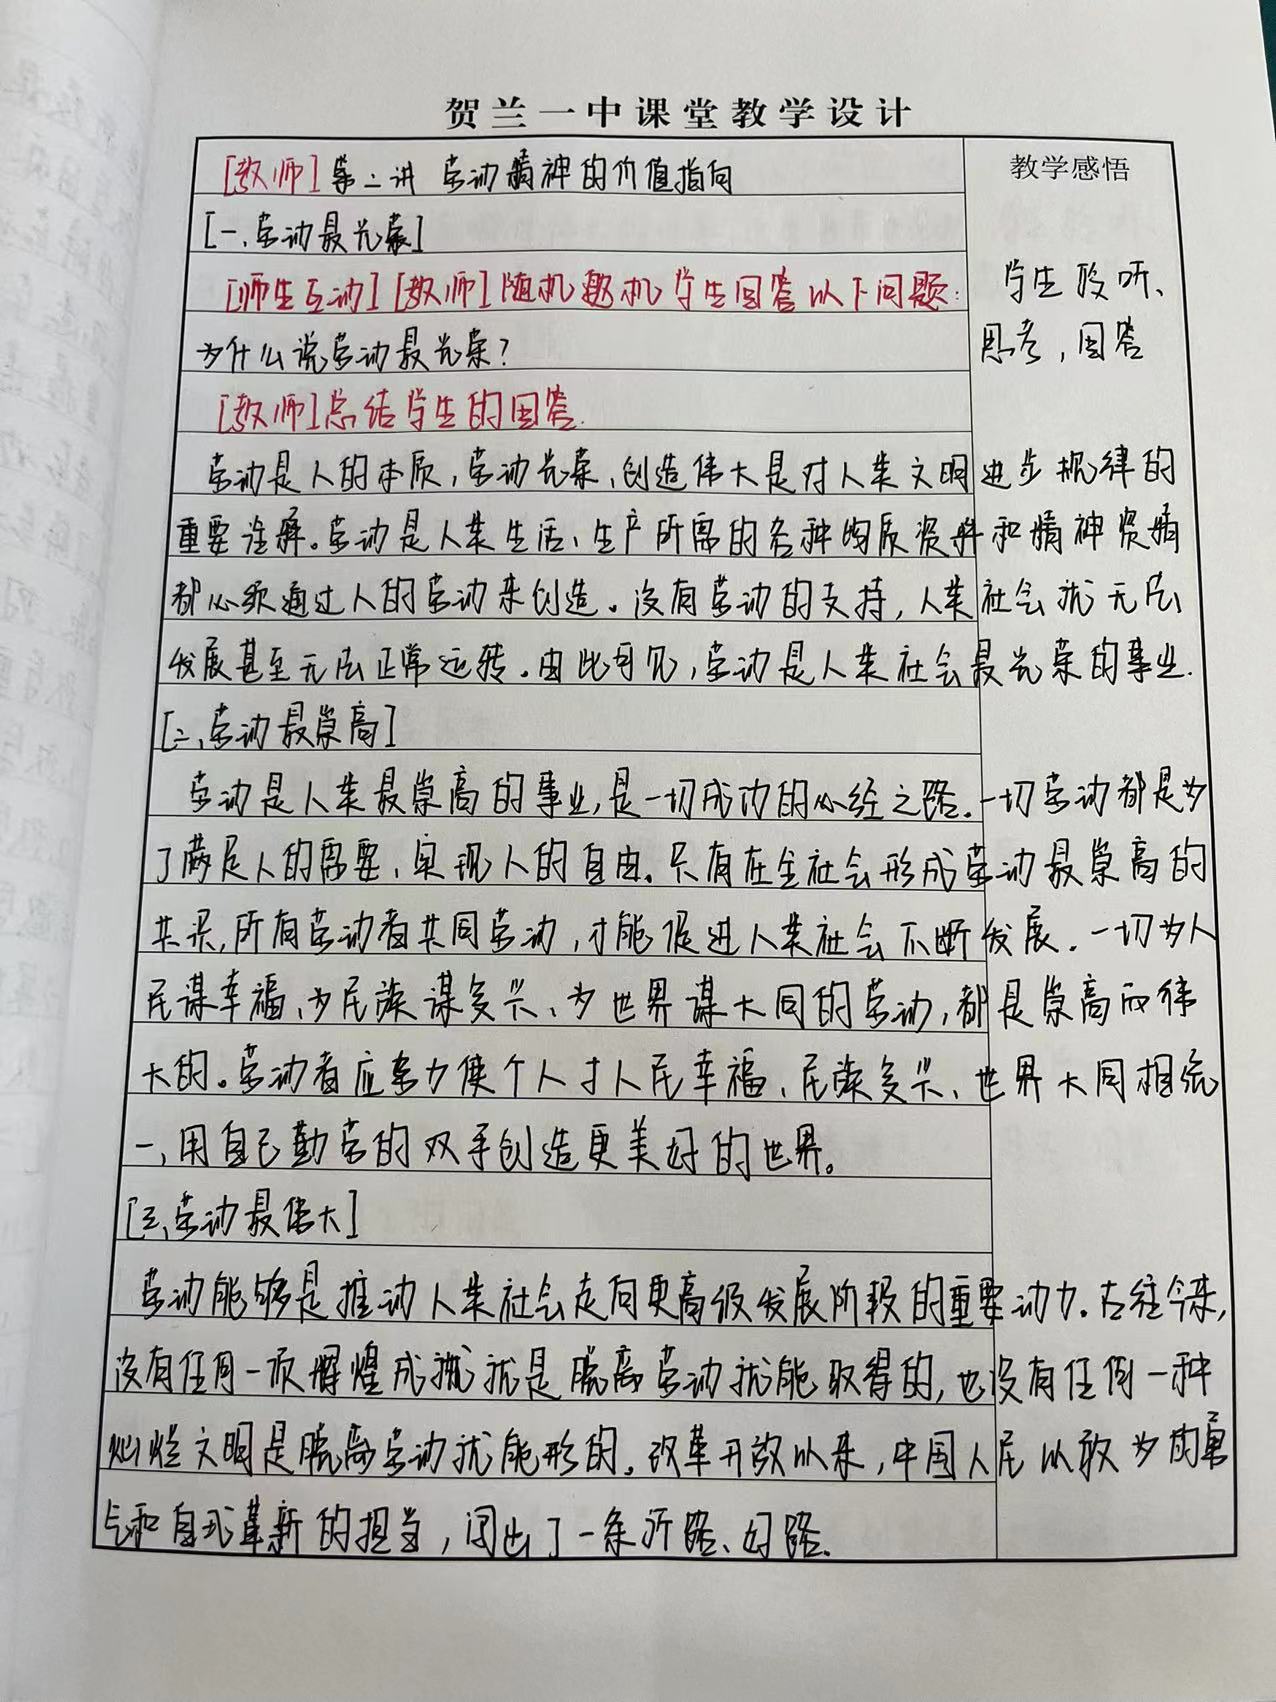 贺兰一中课堂教学设计
[教师]第二讲 劳动精神的价值指向
教学感悟
[一、劳动最光荣]
[师生互动][教师]随机邀机学生回答以下问题:
学生聆听、
思考,回答
为什么说劳动最光荣?
[教师]总结学生的回答.
劳动是人的本质,劳动光荣、创造伟大是对人类文明进步规律的
重要诠释。劳动是人类生活、生产所需的各种物质资料和精神资料
都必须通过人的劳动来创造。没有劳动的支持,人类社会就无法
发展甚至无法正常运转。由此可见,劳动是人类社会最光荣的事业.
[二、劳动最崇高]
劳动是人类最崇高的事业,是一切成功的必经之路。一切劳动都是为
了满足人的需要、实现人的自由。只有在全社会形成劳动最崇高的
共识,所有劳动者共同劳动,才能促进人类社会不断发展.一切为人
民谋幸福、为民族谋复兴、为世界谋大同的劳动,都是崇高而伟
大的。劳动者应努力使个人于人民幸福、民族复兴、世界大同相统
一,用自己勤劳的双手创造更美好的世界。
[三、劳动最伟大]
劳动能够是推动人类社会走向更高级发展阶段的重要动力.古往今来,
没有任何一项辉煌成就就是脱离劳动就能取得的,也没有任何一种
灿烂文明是脱离劳动就能形的。改革开放以来,中国人民以敢为的勇
气和自我革新的担当,闯出了一条新路、好路.